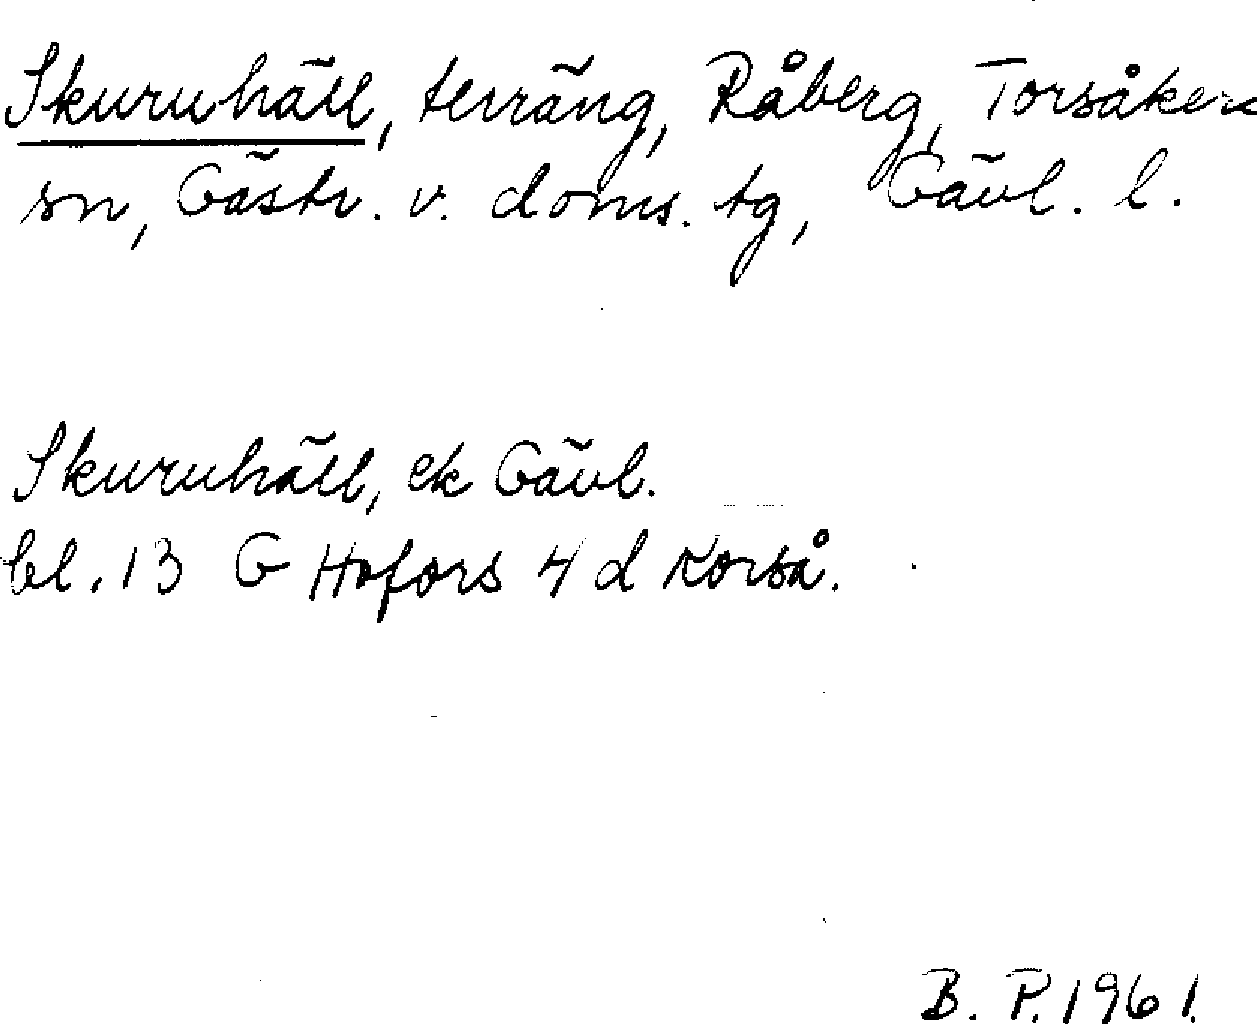 Skuruhäll, terräng, Råberg, Torsåkers
sn, Gästr. v. doms. tg, Gävl. l.
Skuruhäll, ek Gävl.
bl. 13 G Hofors 4 d Korså.
B. P. 1961.